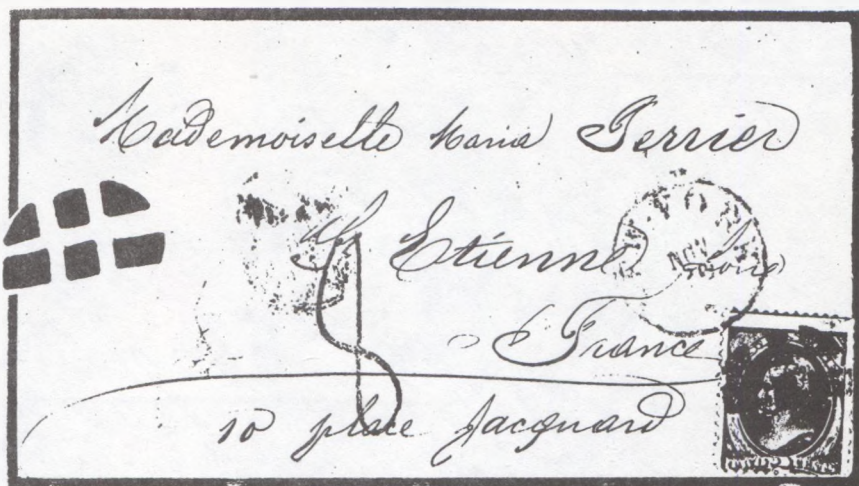 Mademoiselle Maria Perrier
St Etienne Loire
France
10 place Jacquard